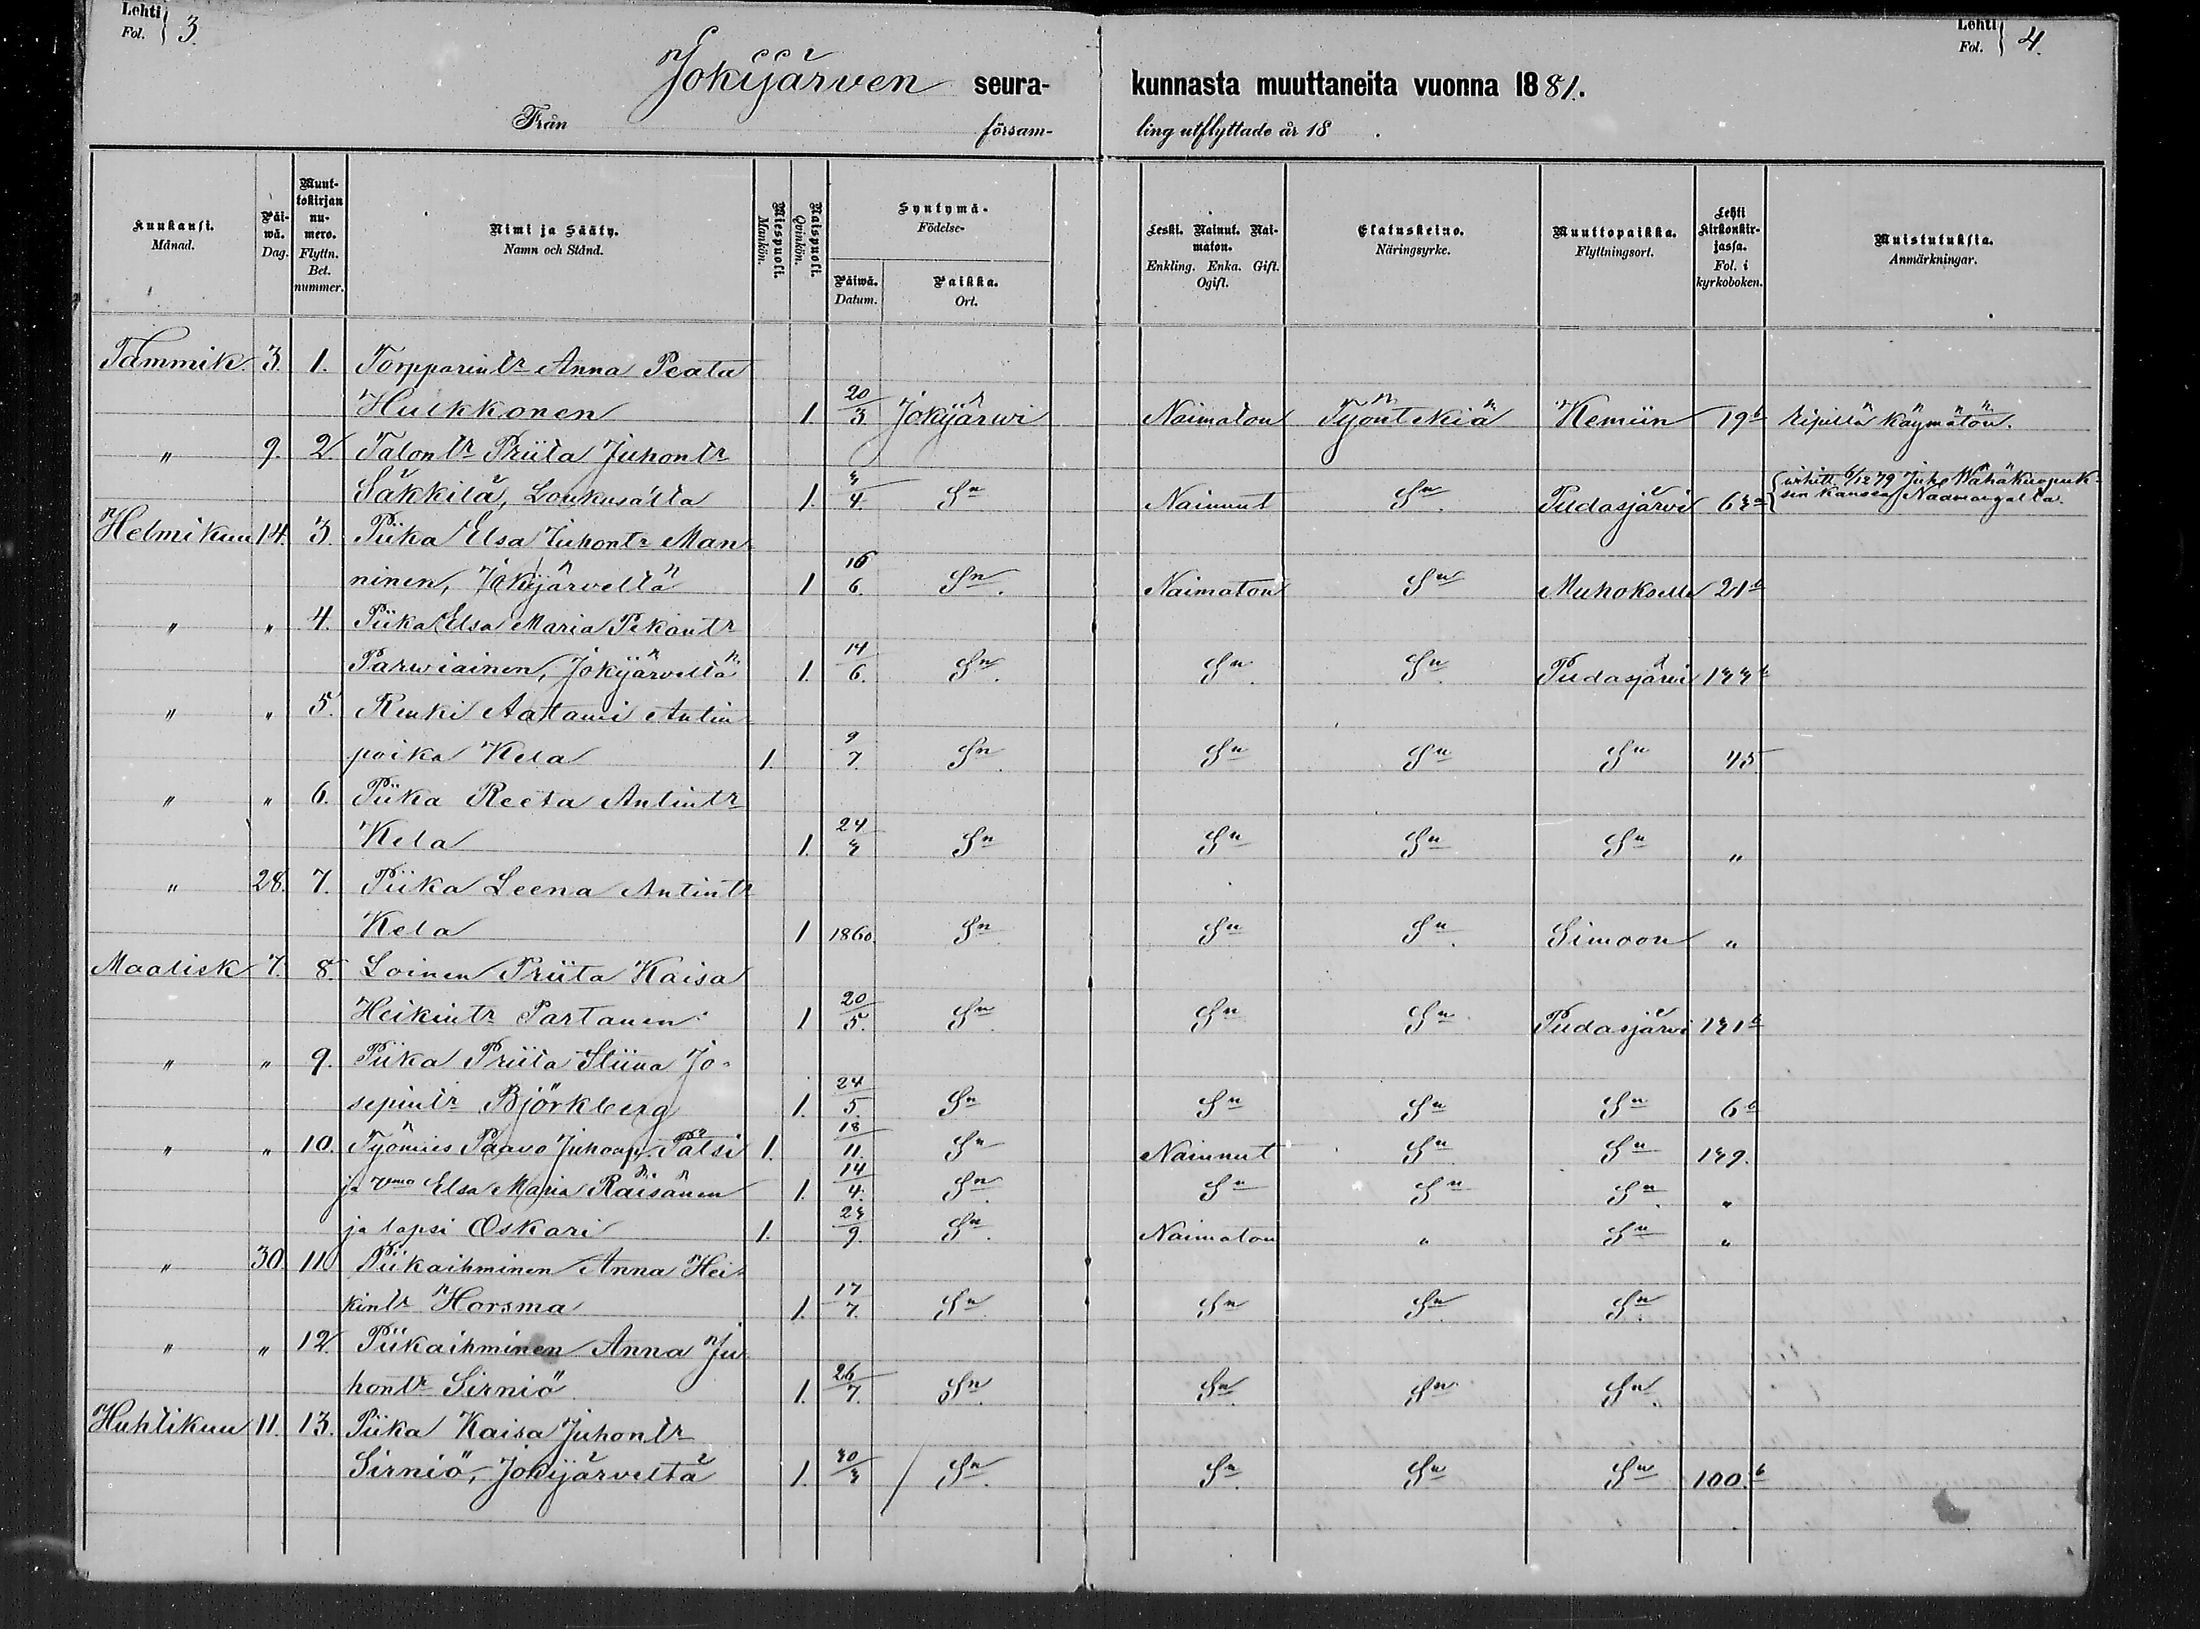 Lehti Fol. 3. Lehti Fol. 4.
Jokijärven seurakunnasta muuttaneita vuonna 1881.
Från församling utflyttade år 18 .
Kuukausi. Månad. Päiwä. Dag. Muuttokirjan numero. Flyttn. Bet. nummer. Nimi ja Sääty. Namn och Stånd. Miespuoli. Mankön. Naispuoli. Qvinkön. Syntymä- Födelse- Päiwä. Datum. Paikka. Ort. Leski. Nainut. Naimaton. Enkling. Enka. Gift. Ogift. Elatuskeino. Näringsyrke. Muuttopaikka. Flyttningsort. Lehti Kirkonkirjassa. Fol. i kyrkoboken. Muistutuksia. Anmärkningar.
Tammik. 3. 1. Torpparintr Anna Peata
Hulkkonen 1. 20/3 Jokijärwi Naimaton Työntekiä Kemiin 19b Ripillä käymätön.
" 9. 2. Talontr Priita Juhontr
Säkkilä, Loukusalta 1. 3/4. Sn Nainnut Sn. Pudasjärvi 63a
Helmikuu 14. 3. Piika Elsa Juhontr Man-
ninen, Jokijärveltä 1 16/6. Sn. Naimaton Sn Muhokselle 21b
" " 4. Piika Elsa Maria Pekantr
Parwiainen, Jokijärveltä 1. 14/6. Sn. Sn. Sn. Pudasjärvi 133b
" " 5. Renki Aatami Antin
poika Kela 1. 9/7. Sn. Sn Sn Sn 45.
" " 6. Piika Reeta Antintr
Kela 1. 24/3 Sn Sn Sn. Sn "
" 28. 7. Piika Leena Antintr
Kela 1 1860. Sn. Sn Sn. Simoon "
Maalisk 7. 8. Loinen Priita Kaisa
Heikintr Partanen 1 20/5. Sn. Sn Sn. Pudasjärvi 131b
" " 9. Piika Priita Stiina Jo-
sepintr Björkberg 1. 24/5. Sn Sn Sn Sn 6b
" " 10. Työmies Paavo Juhonp. Pätsi 1. 18/11. Sn Nainnut Sn. Sn 139.
ja vmo Elsa Maria Räisänen 1. 14/4. Sn. Sn Sn Sn. "
ja lapsi Oskari 1. 23/9. Sn. Naimaton " Sn "
" 30. 11. Piikaihminen Anna Hei-
kintr Horsma 1. 17/7. Sn. Sn Sn. Sn.
" " 12. Piikaihminen Anna Ju
hontr Sirniö 1. 26/7. Sn. Sn. Sn Sn.
Huhtikuu 11. 13. Piika Kaisa Juhontr
Sirniö, Jokijärveltä 1. 30/3 Sn. Sn. Sn Sn 100.b